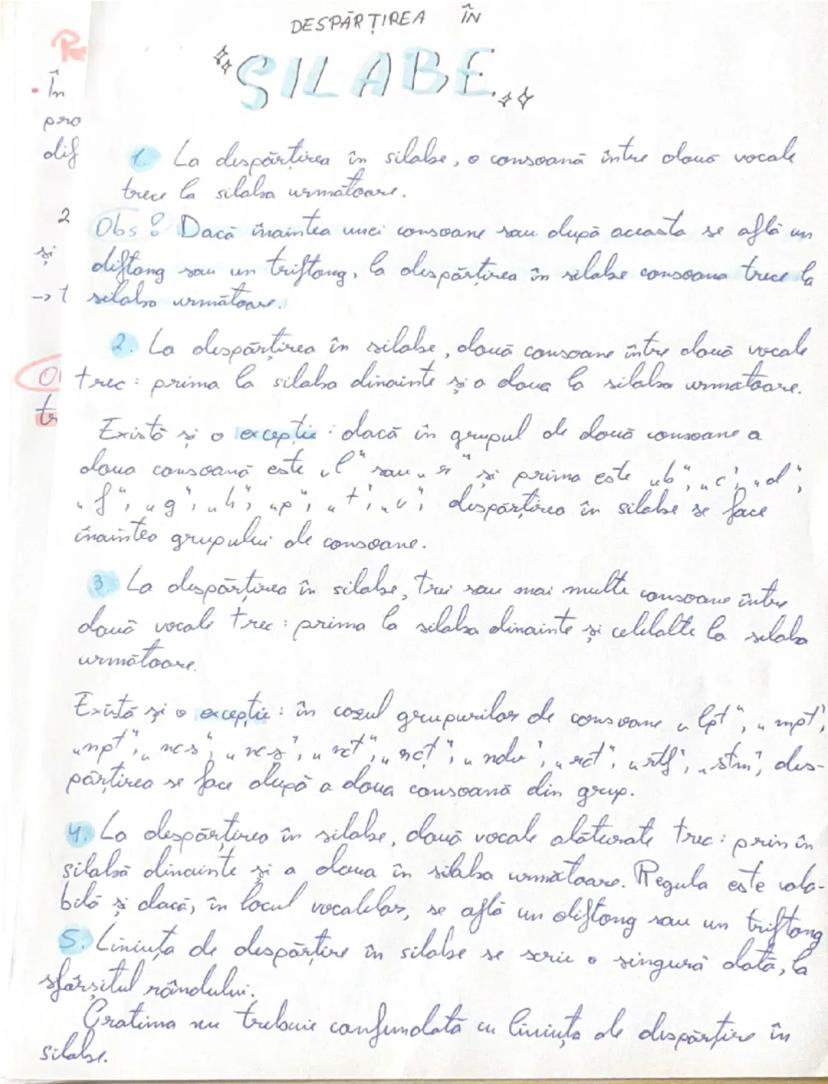 DESPĂRȚIREA ÎN
SILABE
1. La despărțirea în silabe, o consoană între două vocale
trece la silaba următoare.
Obs! Dacă înaintea unei consoane sau după aceasta se află un
diftong sau un triftong, la despărțirea în silabe consoana trece la
silaba următoare.
2. La despărțirea în silabe, două consoane între două vocale
trec: prima la silaba dinainte și a doua la silaba urmatoare.
Există și o excepție: dacă în grupul de două consoane a
doua consoană este „l" sau „r" și prima este „b", „c", „d",
„f", „g", „h", „p", „t", „v", despărțirea în silabe se face
înaintea grupului de consoane.
3 La despărțirea în silabe, trei sau mai multe consoane între
două vocale trec: prima la silaba dinainte și celelalte la silaba
următoare.
Există și o excepție: în cazul grupurilor de consoane „lpt", „mpt",
„mpț", „ncs", „nct", „ncț", „ndv", „rct", „rtf", „stm", des-
părțirea se face după a doua consoană din grup.
4. La despărțirea în silabe, două vocale alăturate trec: prim în
silabă dinainte și a doua în silaba următoare. Regula este vala-
bilă și dacă, în locul vocalelor, se află un diftong sau un triftong
5. Liniuța de despărțire în silabe se scrie o singură dată, la
sfârșitul rândului.
Cratima nu trebuie confundată cu liniuța de despărțire în
silabe.
În
pro
dif
2
și